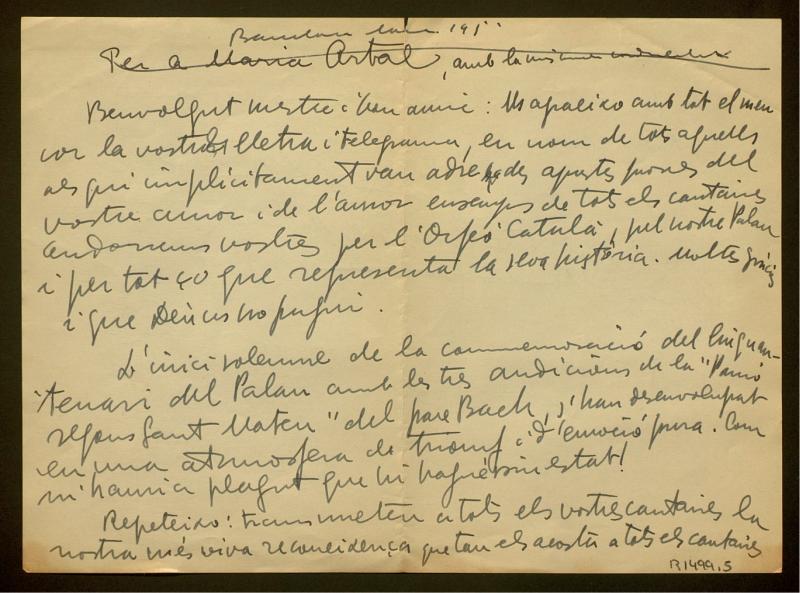 Per a Maria Artal, amb la
Benvolgut mestre i bon amic: Us agraeixo amb tot el meu
cor la vostra lletra i telegrama, en nom de tots aquells
als qui implícitament van adreçades aquestes proves del
vostre amor i de l'amor ensenys de tots els cantaires
andorrans vostres per l'Orfeó Català, pel nostre Palau
i per tot ço que representa la seva història. Moltes gràcies
i que Déu us ho pagui.
L'inici solemne de la commemoració del cinquan-
tenari del Palau amb les tres audicions de la "Passió
segons Sant Mateu" del pare Bach, s'han desenvolupat
en una atmosfera de triomf i d'emoció pura. Com
m'hauria plagut que hi haguéssin estat!
Repeteixo: transmeteu a tots els vostres cantaires la
nostra més viva reconeixença que tan els acosta a tots els cantaires
R1499,5